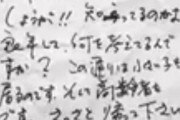 しょうか!! 知ってるのかな
して、何を考えてるんで
すか? この通りは小さい子も
居るのです。そして高齢者も
です。さっさと帰って下さい